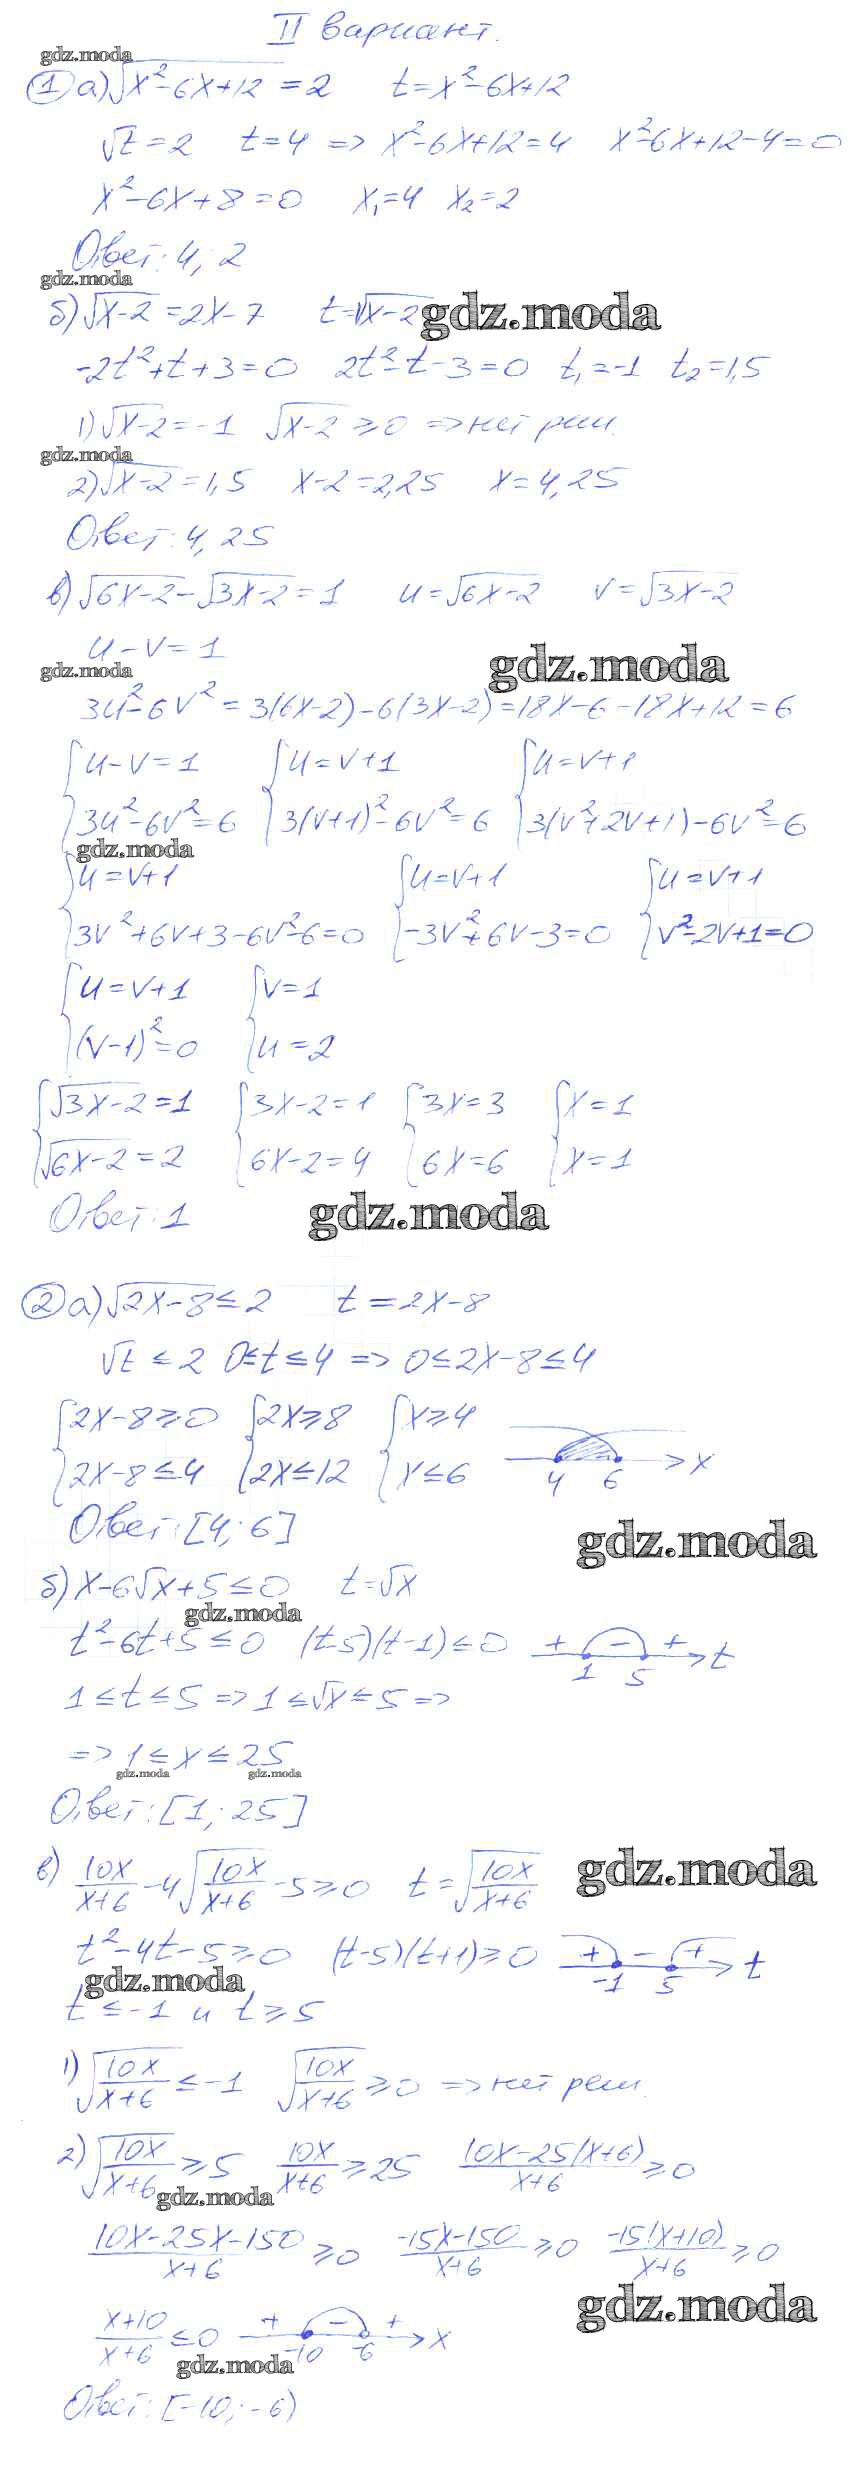 II вариант.
gdz.moda
① а) √(x²-6x+12) = 2   t = x²-6x+12
√t = 2   t = 4 => x²-6x+12 = 4   x²-6x+12-4 = 0
x²-6x+8 = 0   x₁=4   x₂=2
Ответ: 4; 2
gdz.moda
б) √(x-2) = 2x-7   t = √(x-2)   gdz.moda
-2t²+t+3=0   2t²-t-3=0   t₁=-1   t₂=1,5
1) √(x-2) = -1   √(x-2) ≥ 0 => нет реш.
gdz.moda
2) √(x-2) = 1,5   x-2=2,25   x=4,25
Ответ: 4,25
в) √(6x-2) - √(3x-2) = 1   u = √(6x-2)   v = √(3x-2)
u-v=1
gdz.moda   gdz.moda
3u²-6v² = 3(6x-2)-6(3x-2) = 18x-6-18x+12 = 6
{u-v=1   {u=v+1   {u=v+1
{3u²-6v²=6   {3(v+1)²-6v²=6   {3(v²+2v+1)-6v²=6
gdz.moda
{u=v+1   {u=v+1   {u=v+1
{3v²+6v+3-6v²-6=0   {-3v²+6v-3=0   {v²-2v+1=0
{u=v+1   {v=1
{(v-1)²=0   {u=2
{√(3x-2)=1   {3x-2=1   {3x=3   {x=1
{√(6x-2)=2   {6x-2=4   {6x=6   {x=1
Ответ: 1   gdz.moda
② а) √(2x-8) ≤ 2   t = 2x-8
√t ≤ 2   0≤t≤4 => 0≤2x-8≤4
{2x-8≥0   {2x≥8   {x≥4
{2x-8≤4   {2x≤12   {x≤6   4   6   x
Ответ: [4; 6]   gdz.moda
б) x-6√x+5 ≤ 0   t=√x
gdz.moda
t²-6t+5 ≤ 0   (t-5)(t-1) ≤ 0   + - +   1   5   t
1 ≤ t ≤ 5 => 1 ≤ √x ≤ 5 =>
=> 1 ≤ x ≤ 25
gdz.moda   gdz.moda
Ответ: [1; 25]
в) 10x/(x+6) - 4√(10x/(x+6)) - 5 ≥ 0   t = √(10x/(x+6))   gdz.moda
t²-4t-5 ≥ 0   (t-5)(t+1) ≥ 0   + - +   -1   5   t
gdz.moda
t ≤ -1 и t ≥ 5
1) √(10x/(x+6)) ≤ -1   √(10x/(x+6)) ≥ 0 => нет реш.
2) √(10x/(x+6)) ≥ 5   10x/(x+6) ≥ 25   (10x-25(x+6))/(x+6) ≥ 0
gdz.moda
(10x-25x-150)/(x+6) ≥ 0   (-15x-150)/(x+6) ≥ 0   (-15(x+10))/(x+6) ≥ 0
gdz.moda
(x+10)/(x+6) ≤ 0   + - +   -10   -6   x
gdz.moda
Ответ: [-10; -6)